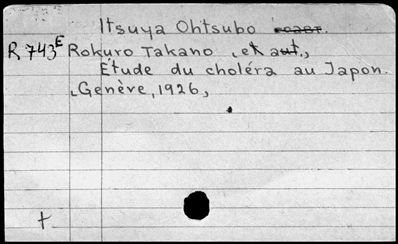 Itsuya Ohtsubo
R 743E Rokuro Takano et aut.,
Étude du choléra au Japon.
Genève, 1926,
†